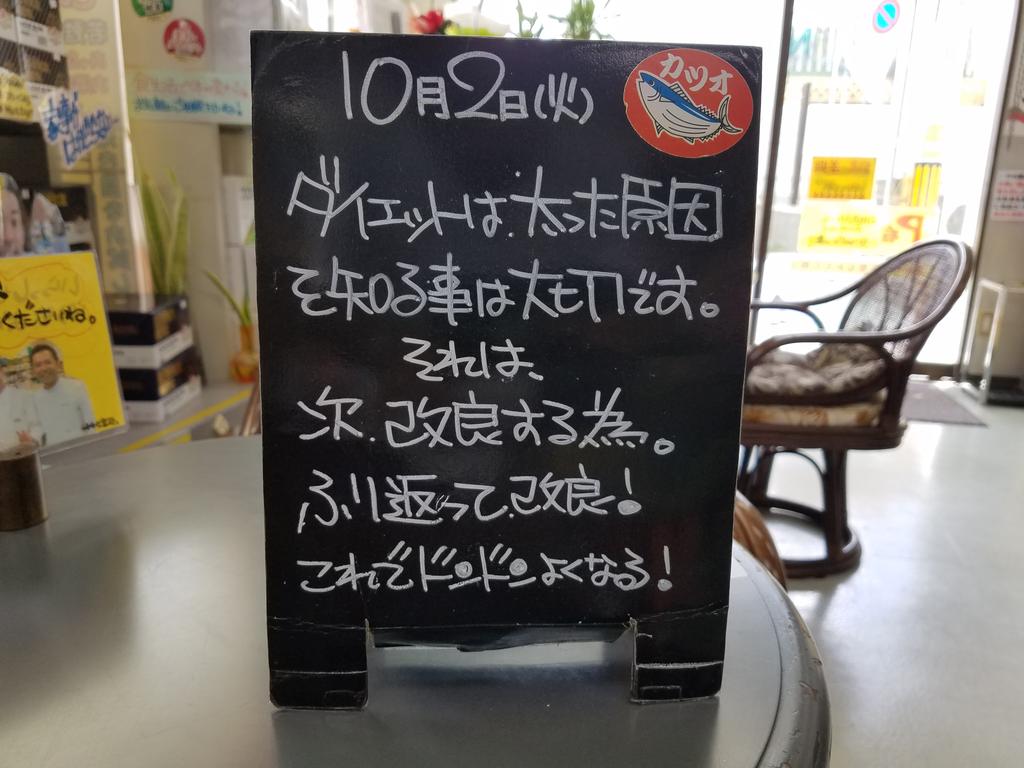 10月2日(火)
カツオ
ダイエットは、太った原因
を知る事は大切です。
それは、
次、改良する為。
ふり返って、改良！
これでドンドンよくなる！
くださいね。